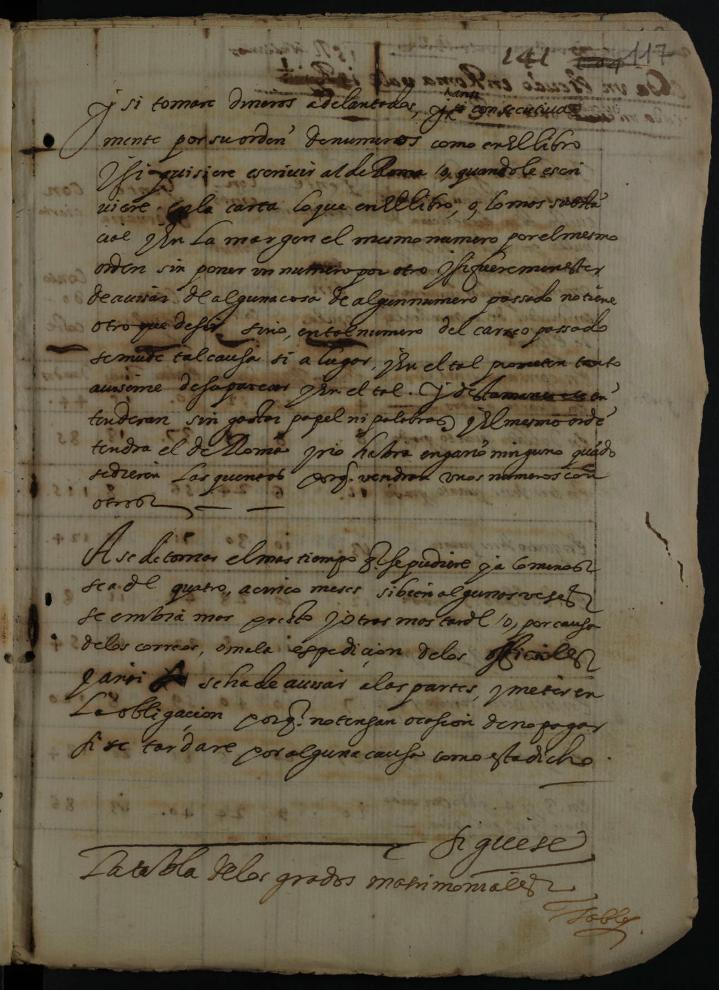 141 117
y si tomare dineros adelantados, y assi consecutiua
mente por su orden de numeros como en el libro
y si quisiere escriuir al de Roma /o, quando le escri
uiere en la carta lo que en el libro, o, lo mas sustã
cial y en La margen el mesmo numero por el mesmo
orden sin poner vn numero por otro y si fuere menester
de auisar de alguna cosa de algun numero passado no tiene
otro que desir sino, en tal numero del correo passado
se mude tal causa si a lugar, y en el tal tanto
auiseme de su parecer y en el tal. y en
tenderan sin gastar papel ni palabras y el mesmo ordẽ
tendra el de Roma y no habra engaño ninguno quãdo
se dieren Las quentas porq. vendran vnos numeros con
otros
A se de tomar el mas tiempo q. se pudiere y a lo menos
sea de quatro, a cinco meses si bien algunas vezes
se embia mas presto y otras mas tarde /o, por causa
de los correos, o mala espedicion de los officiales
y ansi se ha de auisar a las partes, y meter en
La obligacion porq. no tengan ocasion de no pagar
si se tardare por alguna causa como esta dicho.
Siguese
La tabla de los grados matrimoniales
Tabla